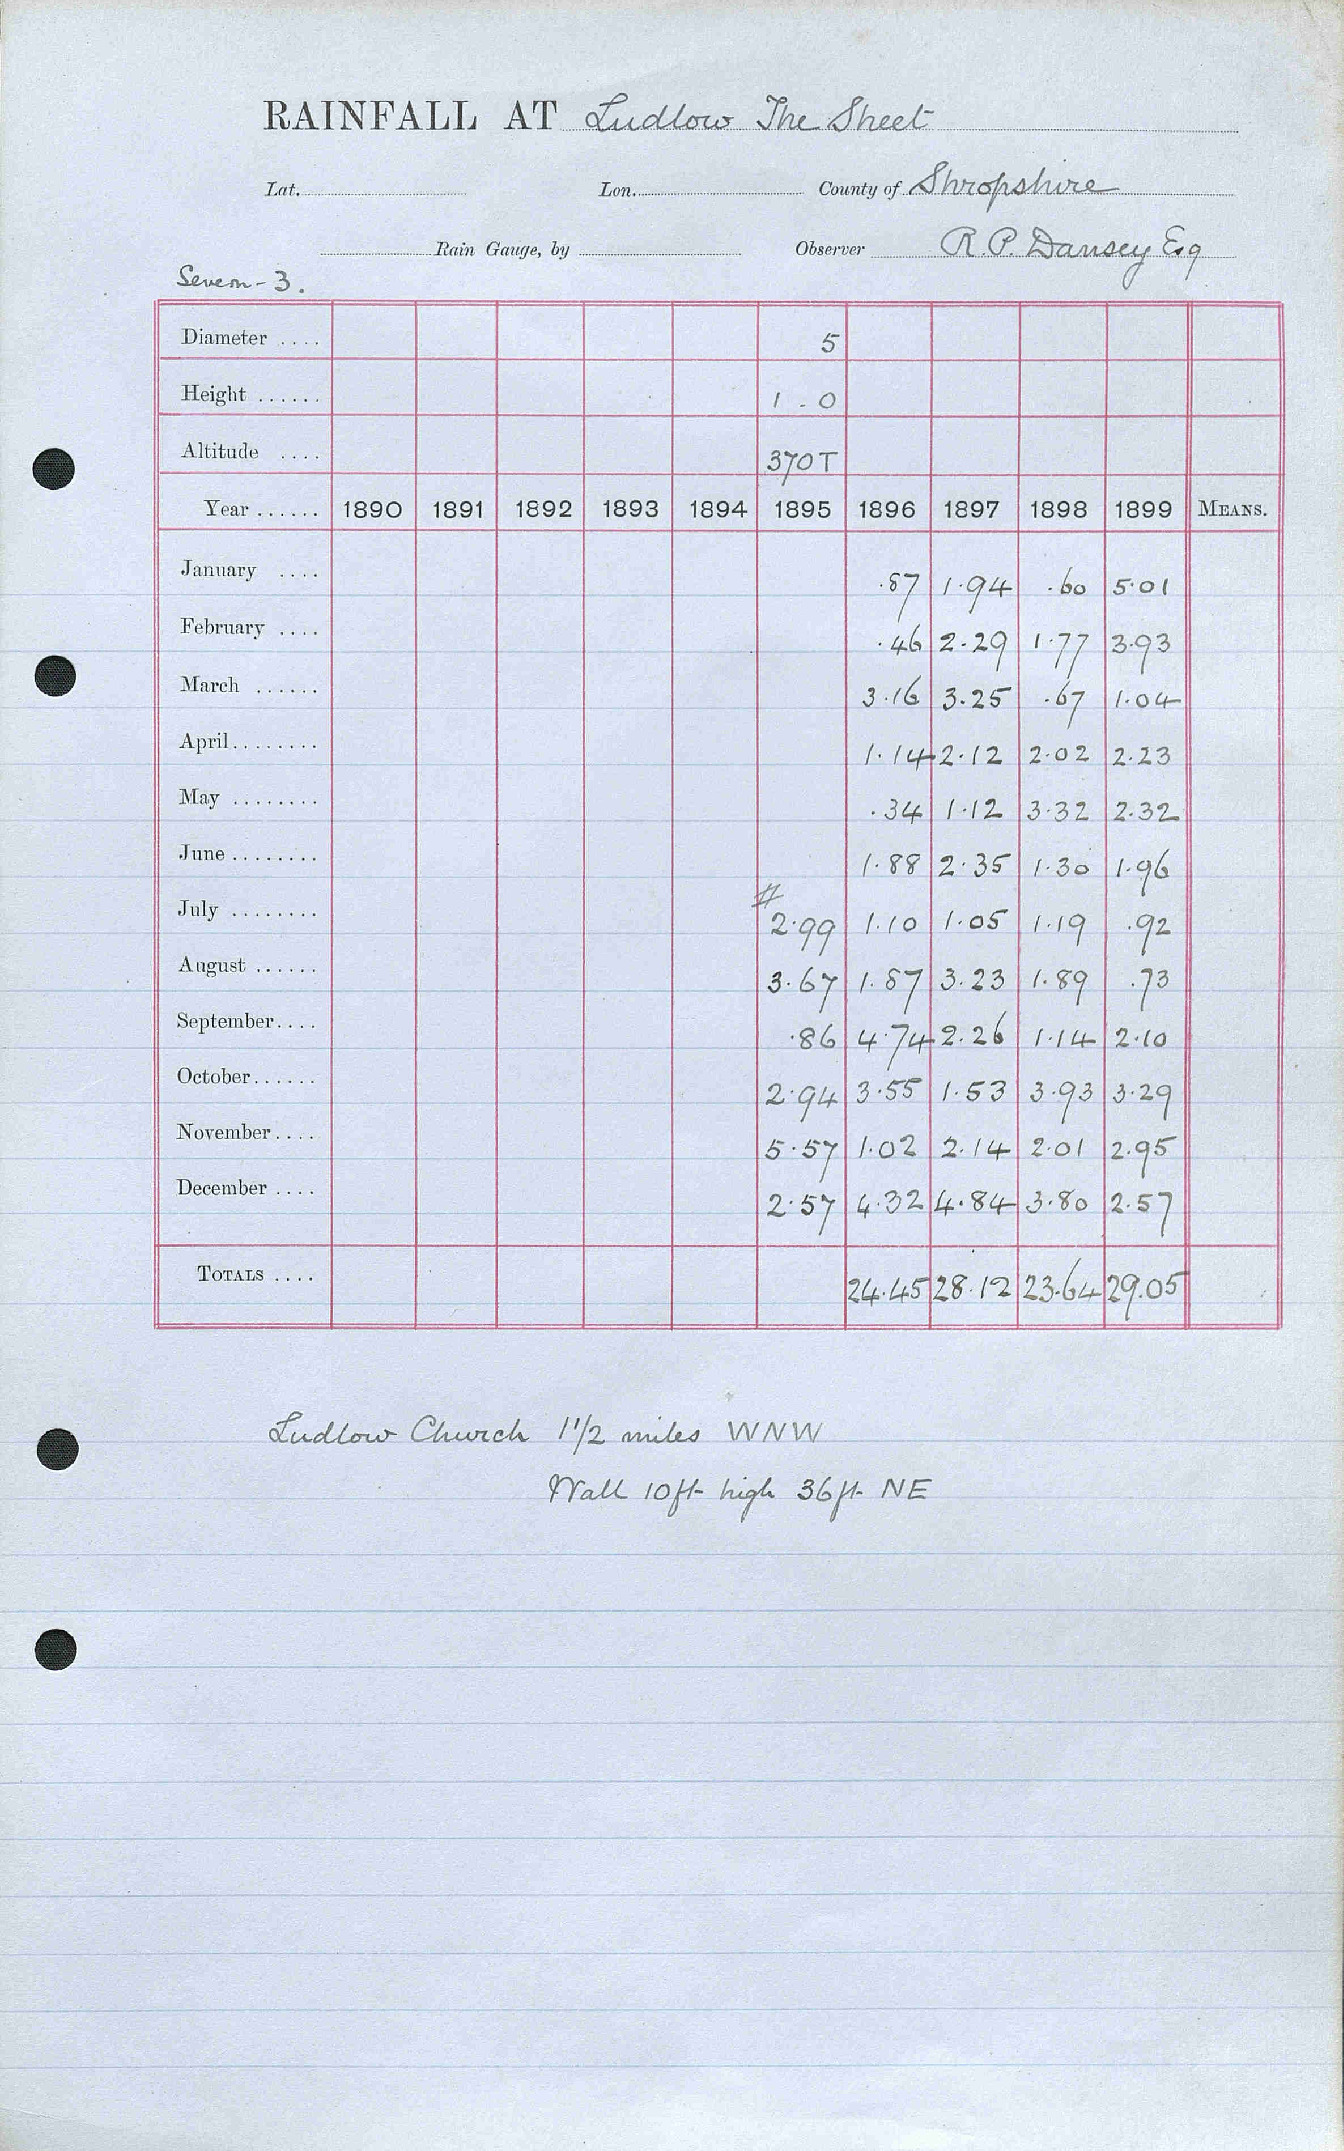 RAINFALL AT Ludlow The Sheet
Lat. Lon. County of Shropshire
Rain Gauge, by Observer R. P. Dansey Esq
Severn - 3.
Diameter .... 5
Height ...... 1 - 0
Altitude .... 370 T
Year ...... 1890 1891 1892 1893 1894 1895 1896 1897 1898 1899 MEANS.
January .... .87 1.94 .60 5.01
February .... .46 2.29 1.77 3.93
March ...... 3.16 3.25 .67 1.04
April........ 1.14 2.12 2.02 2.23
May ........ .34 1.12 3.32 2.32
June ........ 1.88 2.35 1.30 1.96
July ........ # 2.99 1.10 1.05 1.19 .92
August ...... 3.67 1.87 3.23 1.89 .73
September.... .86 4.74 2.26 1.14 2.10
October...... 2.94 3.55 1.53 3.93 3.29
November.... 5.57 1.02 2.14 2.01 2.95
December .... 2.57 4.32 4.84 3.80 2.57
TOTALS .... 24.45 28.12 23.64 29.05
Ludlow Church 1 1/2 miles WNW
Wall 10ft high 36ft NE